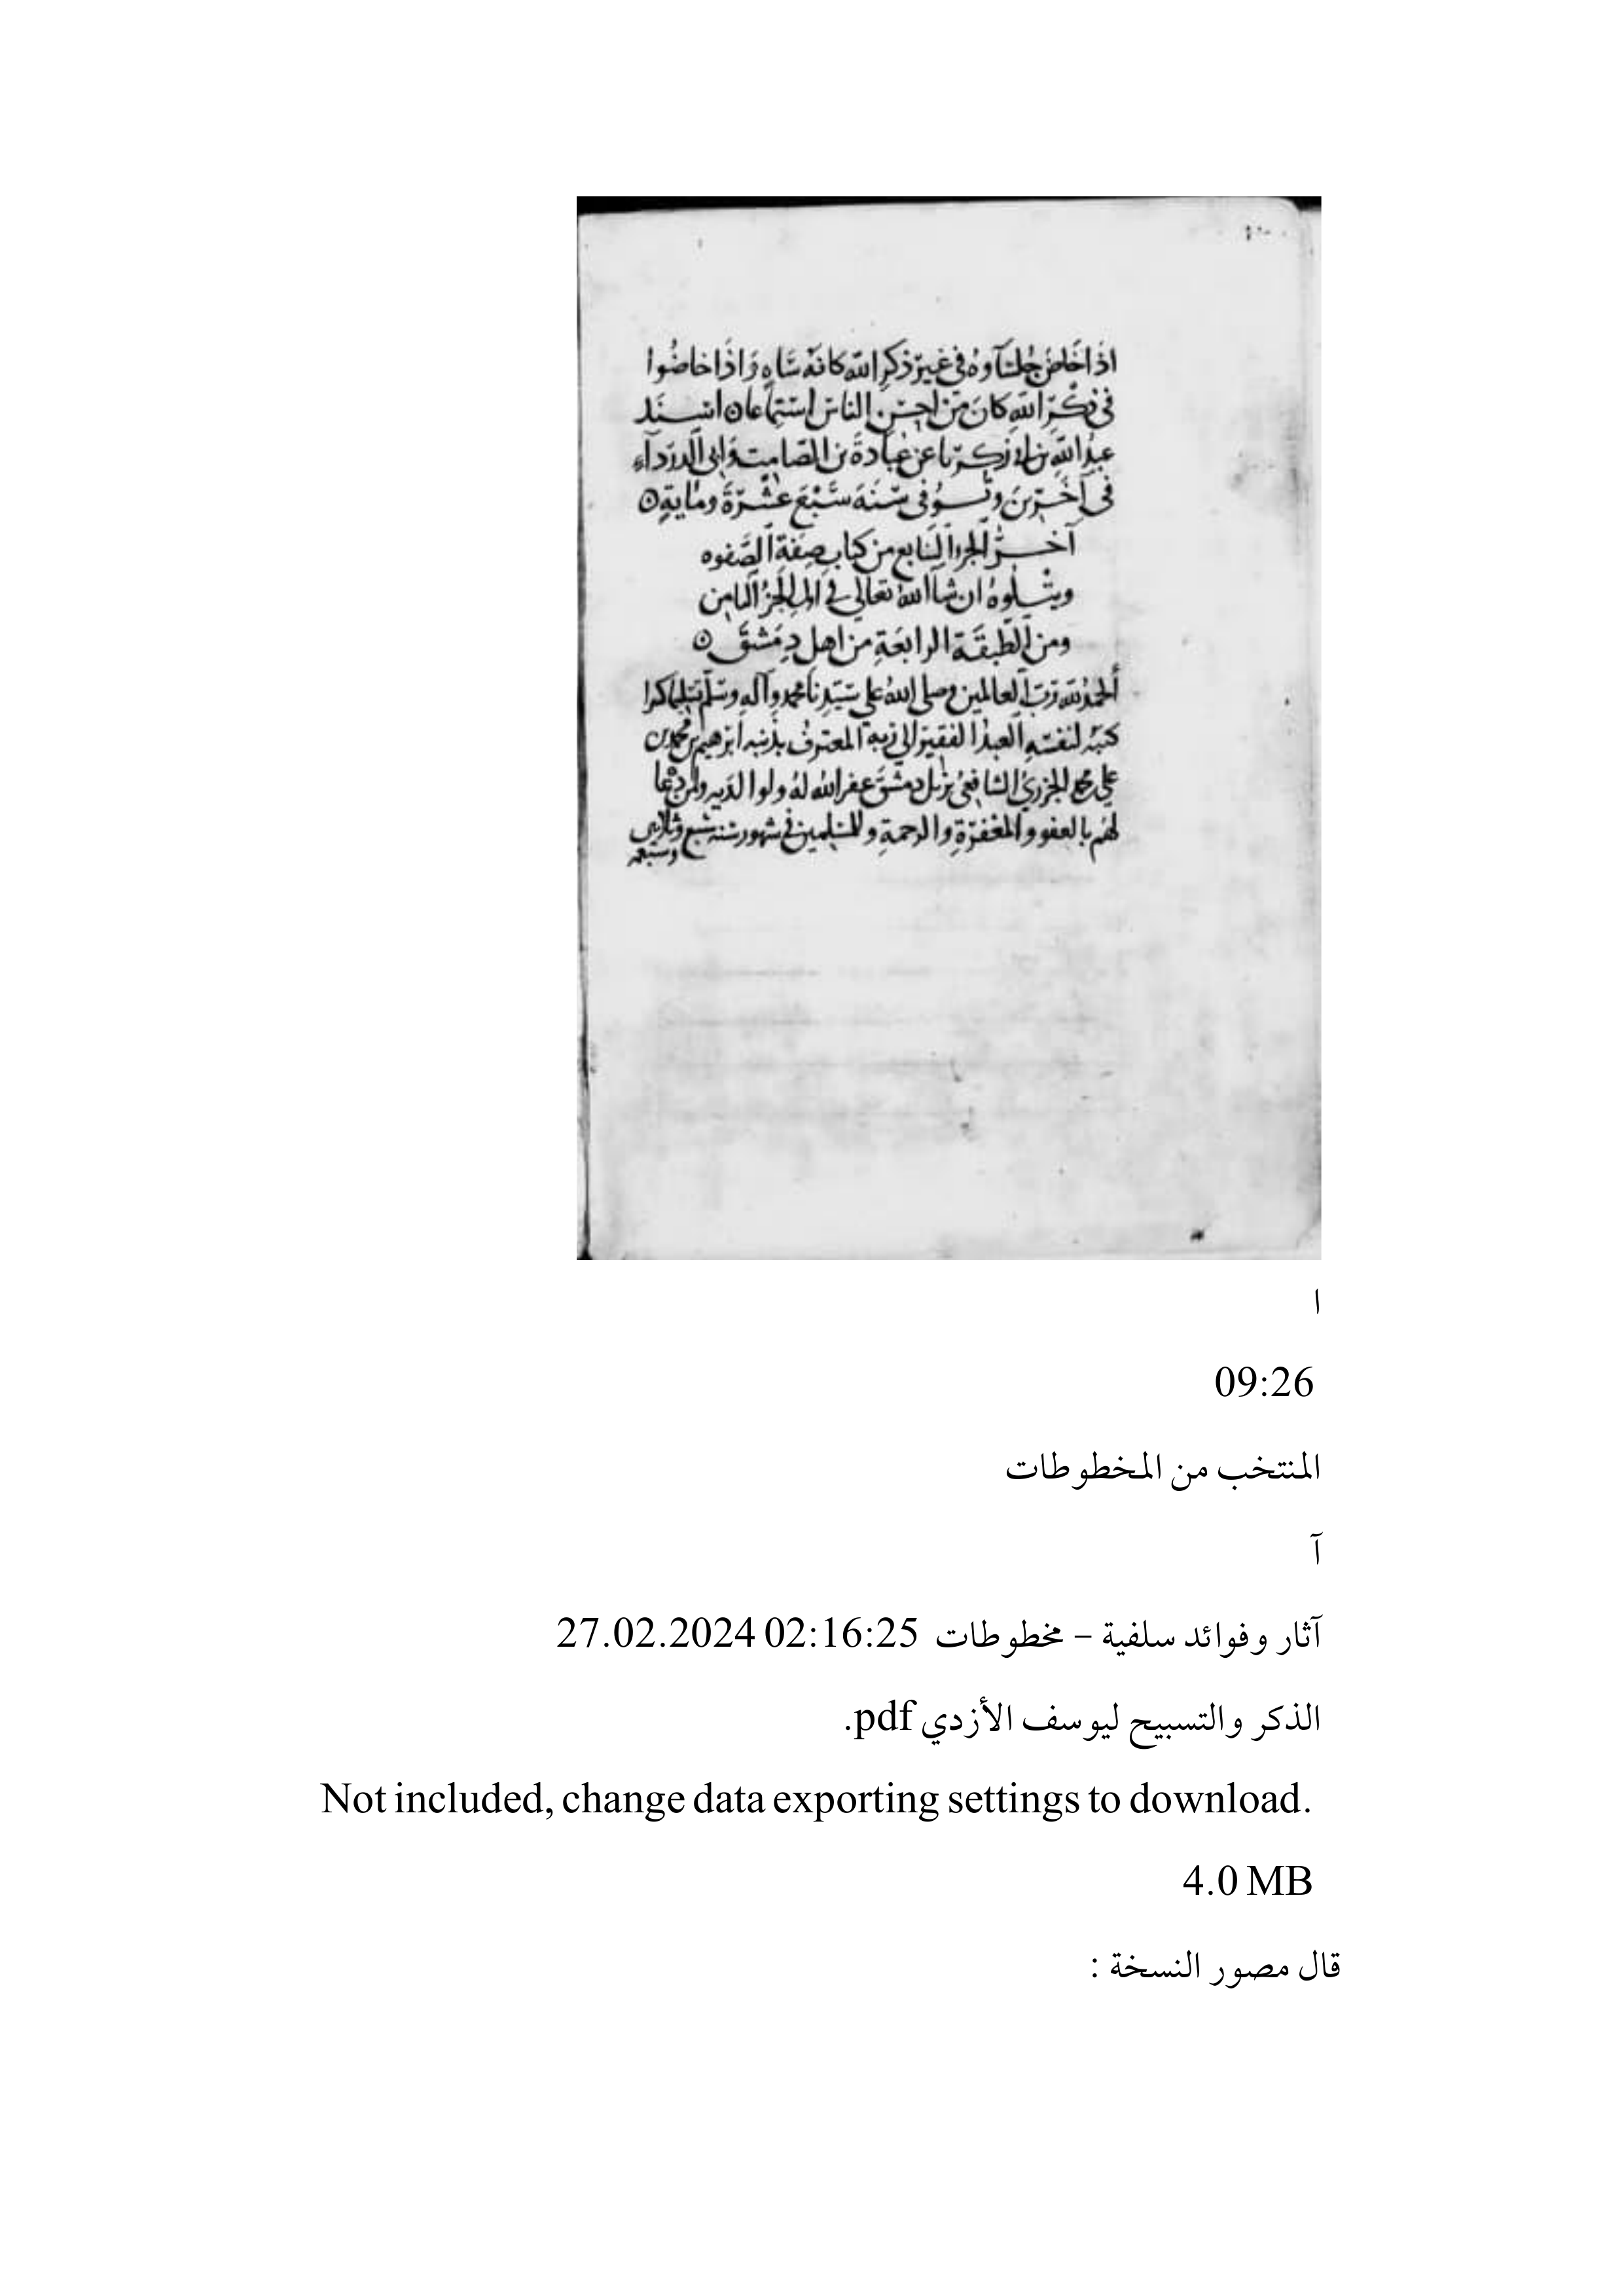 اذا خاض جلساوه في غير ذكر الله كانه ساه واذا خاضوا
في ذكر الله كان من احسن الناس استماعا ن اسند
عبد الله بن ابي زكريا عن عبادة بن الصامت وابي الدرداء
في آخرين وتوفي سنة سبع عشرة ومائة ن
آخر الجزء السابع من كتاب صفة الصفوه
ويتلوه ان شا الله تعالى في اول الجزء الثامن
ومن الطبقة الرابعة من اهل دمشق ن
الحمد لله رب العالمين وصلى الله على سيدنا محمد وآله وسلم تسليما كثيرا
كتبه لنفسه العبد الفقير الى ربه المعترف بذنبه ابرهيم بن محمد بن
علي الجزري الشافعي نزيل دمشق غفر الله له ولوالديه ولمن دعا
لهم بالعفو والمغفرة والرحمة وللمسلمين في شهور سنة سبع وثلاثين
وسبعمه
ا
09:26
المنتخب من المخطوطات
آ
آثار وفوائد سلفية – مخطوطات 27.02.2024 02:16:25
الذكر والتسبيح ليوسف الأزدي pdf.
Not included, change data exporting settings to download.
4.0 MB
قال مصور النسخة :